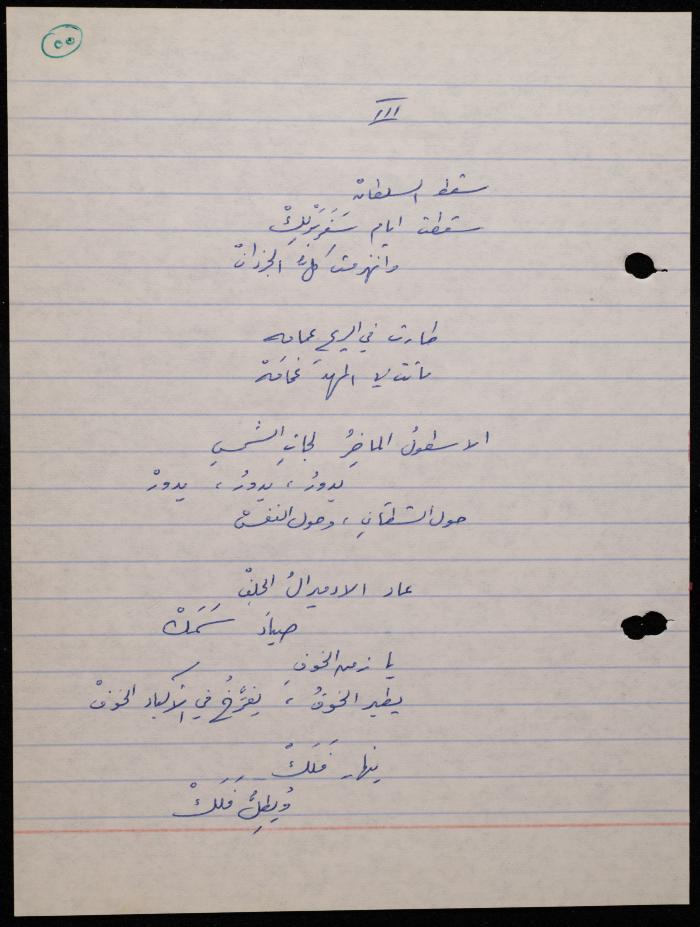 ٥٥
III
سقط السلطانْ
سقطت ايام سَفَرْبَرْلِكْ
وانهزمت كلُّ الجرذانْ
طارت في الريح عمامه
باتت في المهدَ غمَامَهْ
الاسطولُ الماخِرُ لجانِ الشمسِ
يدورُ ، يدورُ ، يدورْ
حول الشطآنِ ، وحول النفسْ
عاد الادميرالُ الجلِفْ
صيادَ سَمَكْ
يا زمن الخوف
يطير الخوفُ ، يفرّخُ في الأكباد الخوفْ
ينهار فَلَكْ
ويطلُّ فَلَكْ